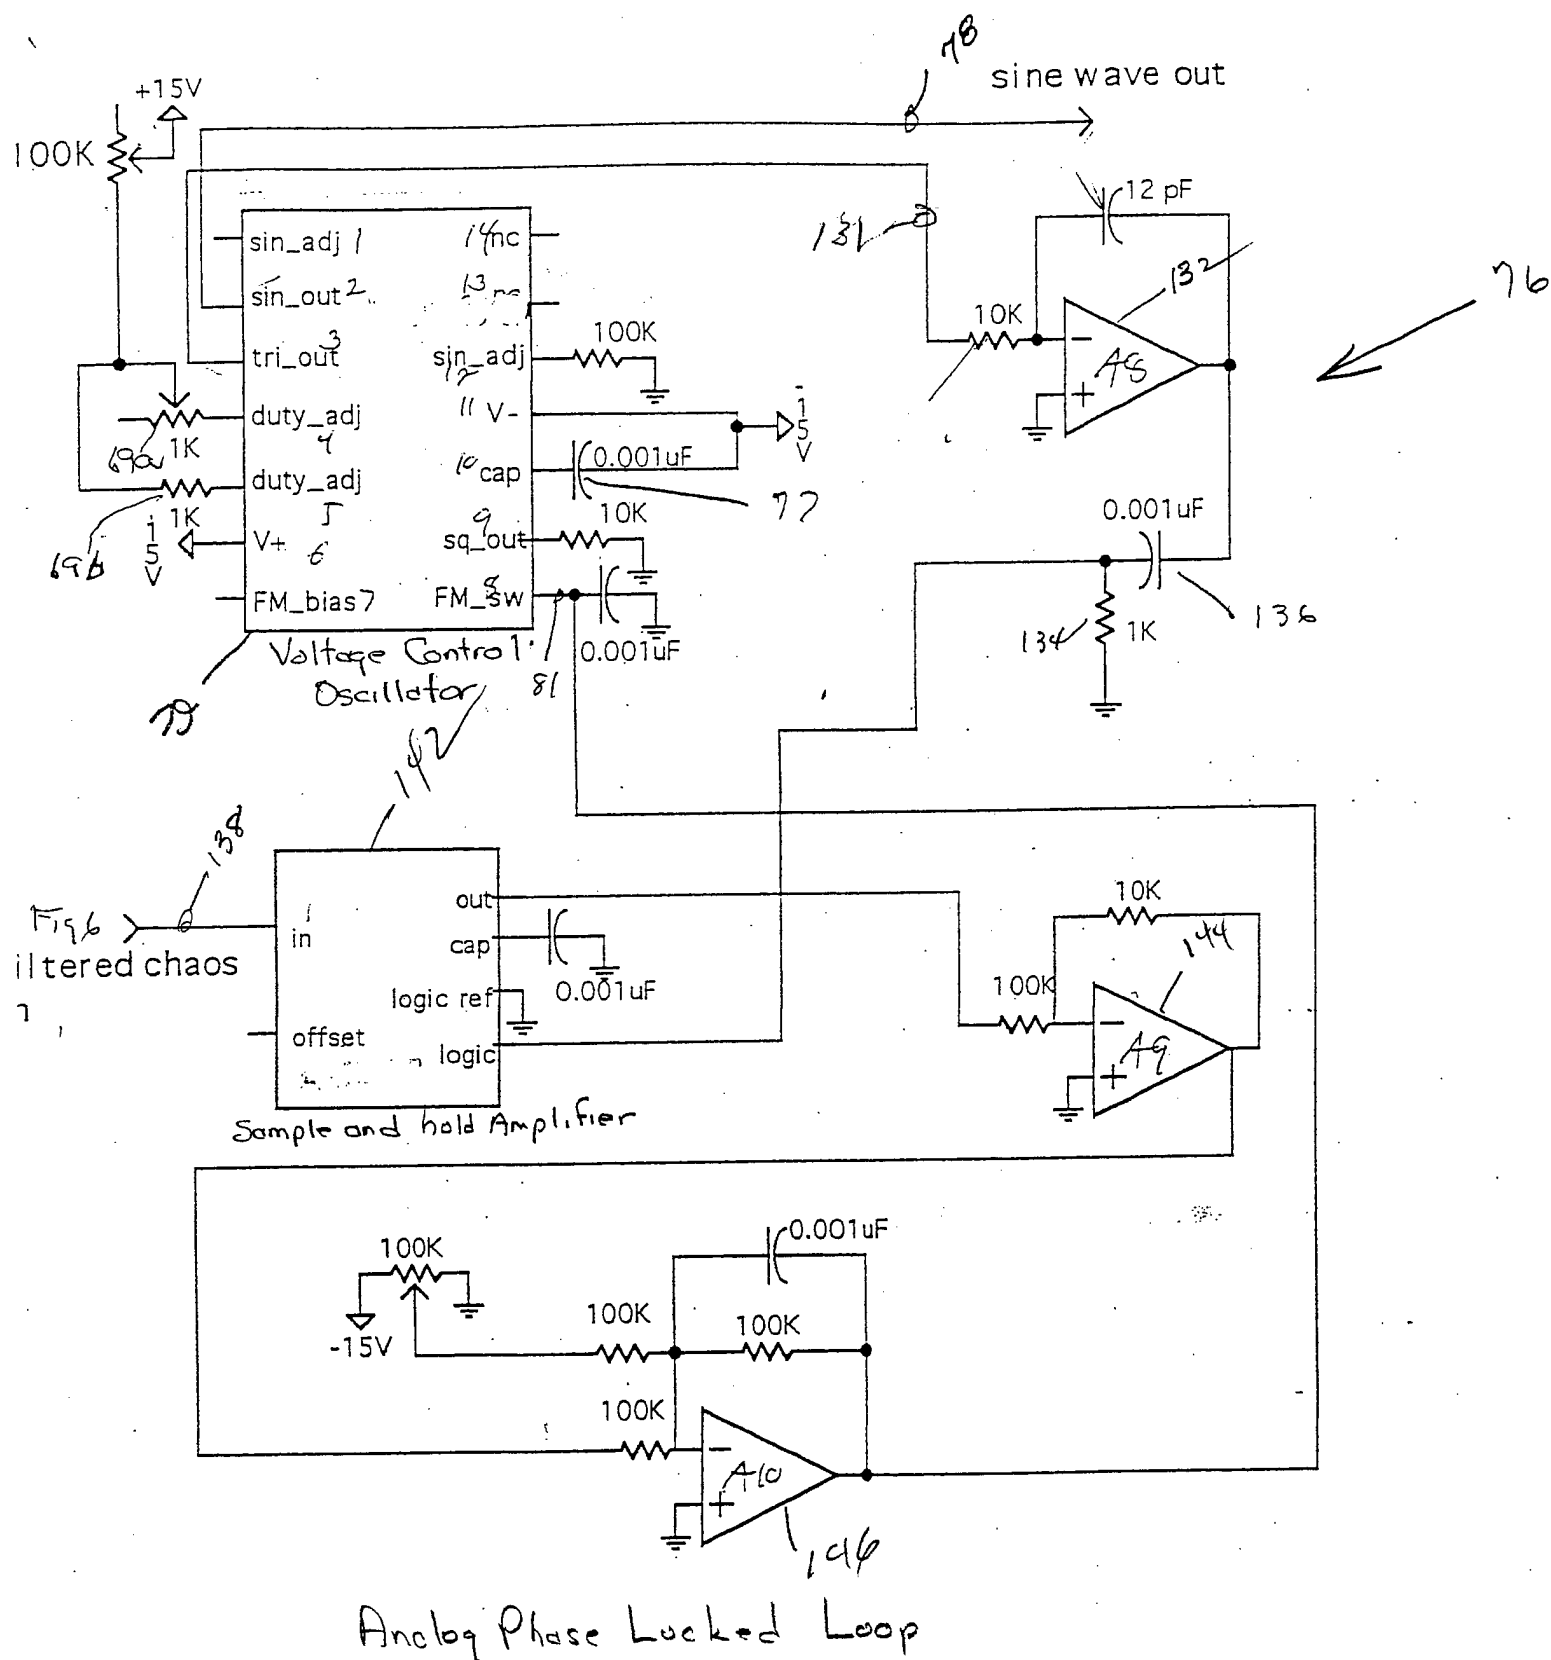 78
sine wave out
+15V
100K
12 pF
131
132
76
sin_adj 1
14 nc
sin_out 2
13
10K
100K
tri_out 3
sin_adj 12
A8
-
+
duty_adj 4
11 V-
-15V
69a
1K
10 cap
0.001uF
77
duty_adj 5
69b
1K
15V
V+ 6
9 sq_out
10K
0.001uF
136
FM_bias 7
8 FM_sw
0.001uF
134
1K
Voltage Control
Oscillator
81
79
142
138
Fig 6
iltered chaos
in
out
cap
0.001uF
logic ref
offset
logic
Sample and hold Amplifier
10K
144
100K
-
A9
+
100K
-15V
0.001uF
100K
100K
100K
-
A10
+
146
Analog Phase Locked Loop